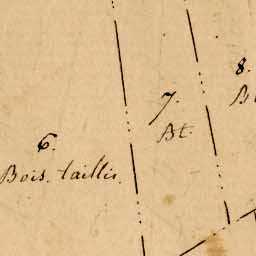 6.
Bois. taillis.
7.
Bt.
8.